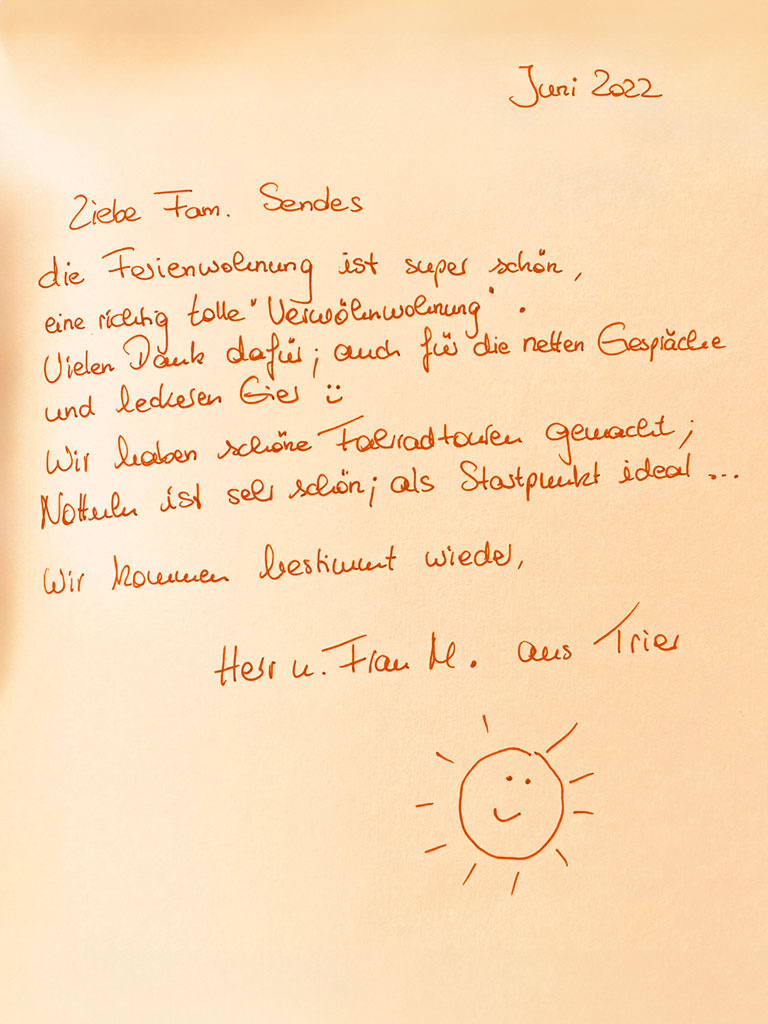 Juni 2022
Liebe Fam. Sendes
die Ferienwohnung ist super schön,
eine richtig tolle "Verwöhnwohnung".
Vielen Dank dafür; auch für die netten Gespräche
und leckeren Eier ü
Wir haben schöne Fahrradtouren gemacht;
Nottuln ist sehr schön; als Startpunkt ideal ...
Wir kommen bestimmt wieder,
Herr u. Frau M. aus Trier